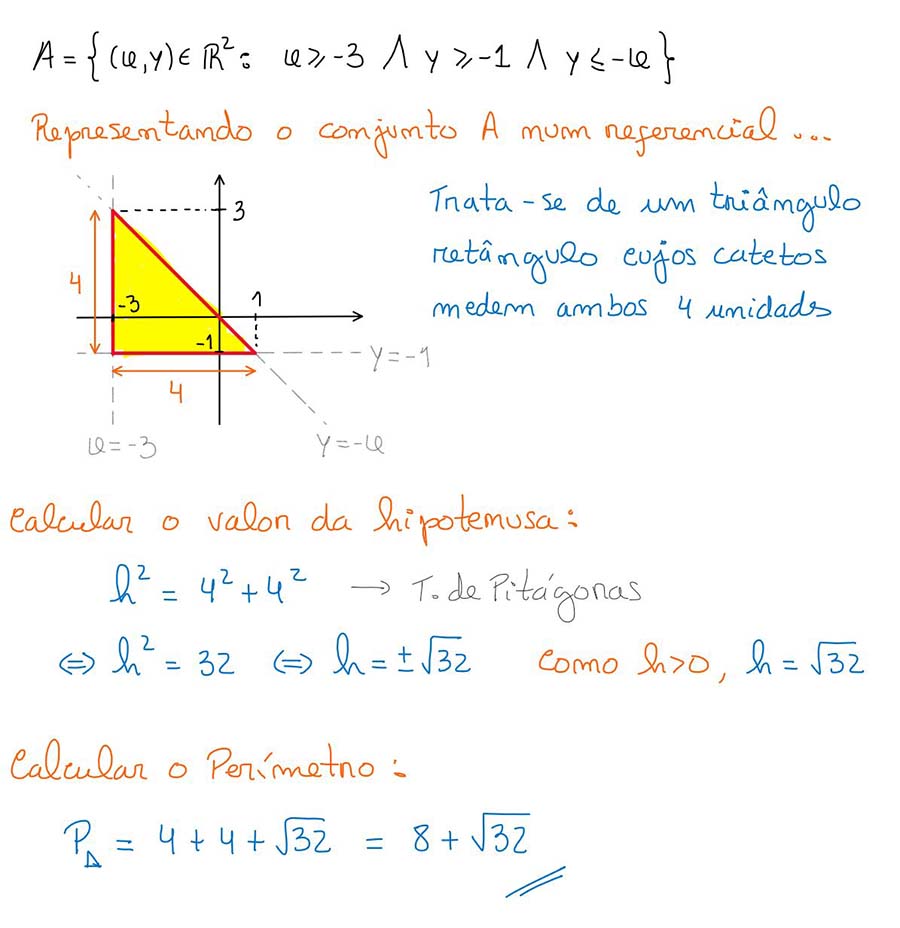 A = { (x,y) ∈ ℝ² : x ≥ -3 ∧ y ≥ -1 ∧ y ≤ -x }
Representando o conjunto A num referencial ...
Trata-se de um triângulo
retângulo cujos catetos
medem ambos 4 unidades
3
4
-3
1
-1
y = -1
4
x = -3
y = -x
Calcular o valor da hipotenusa :
h² = 4² + 4² → T. de Pitágoras
⇔ h² = 32 ⇔ h = ±√32 como h>0, h = √32
Calcular o Perímetro :
P△ = 4 + 4 + √32 = 8 + √32